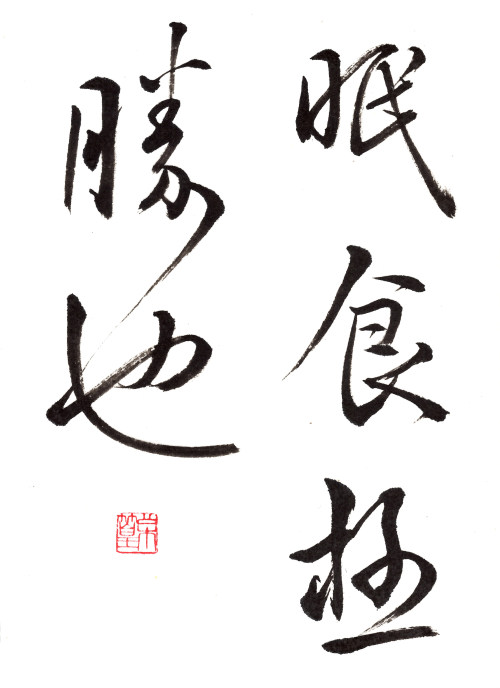 眠食極
勝也